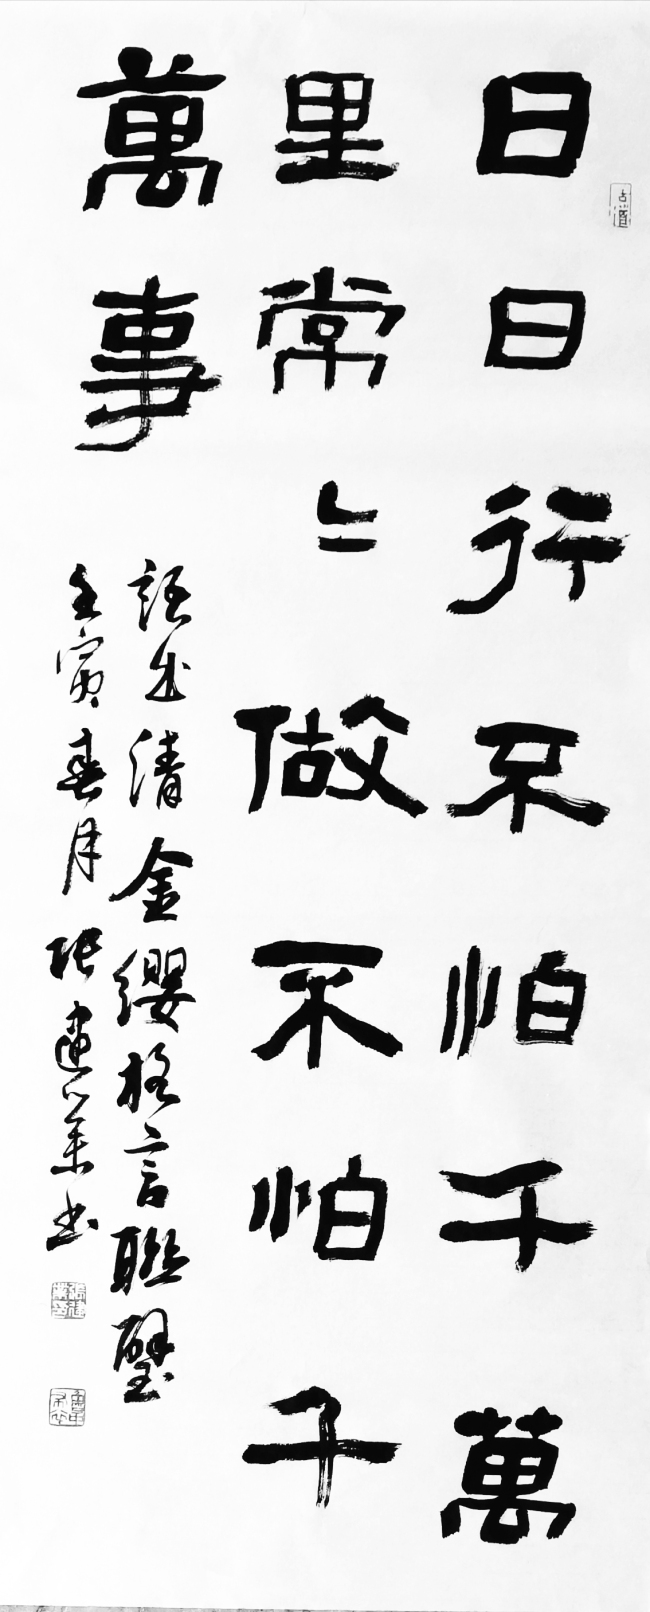 日日行不怕千萬
里常〻做不怕千
萬事
語出清金纓格言聯璧
壬寅春月張建業书